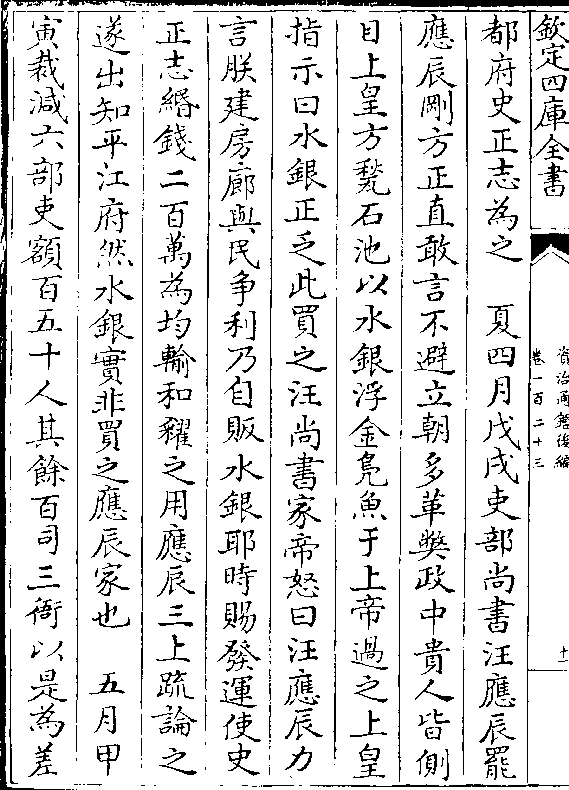 欽定四庫全書
資治通鑑後編
卷一百二十三
十一
都府史正志為之　夏四月戊戌吏部尚書汪應辰罷
應辰剛方正直敢言不避立朝多革弊政中貴人皆側
目上皇方甃石池以水銀浮金鳧魚于上帝過之上皇
指示曰水銀正乏此買之汪尚書家帝怒曰汪應辰力
言朕建房廊與民爭利乃自販水銀耶時賜發運使史
正志緡錢二百萬為均輸和糴之用應辰三上疏論之
遂出知平江府然水銀實非買之應辰家也　五月甲
寅裁減六部吏額百五十人其餘百司三衙以是為差